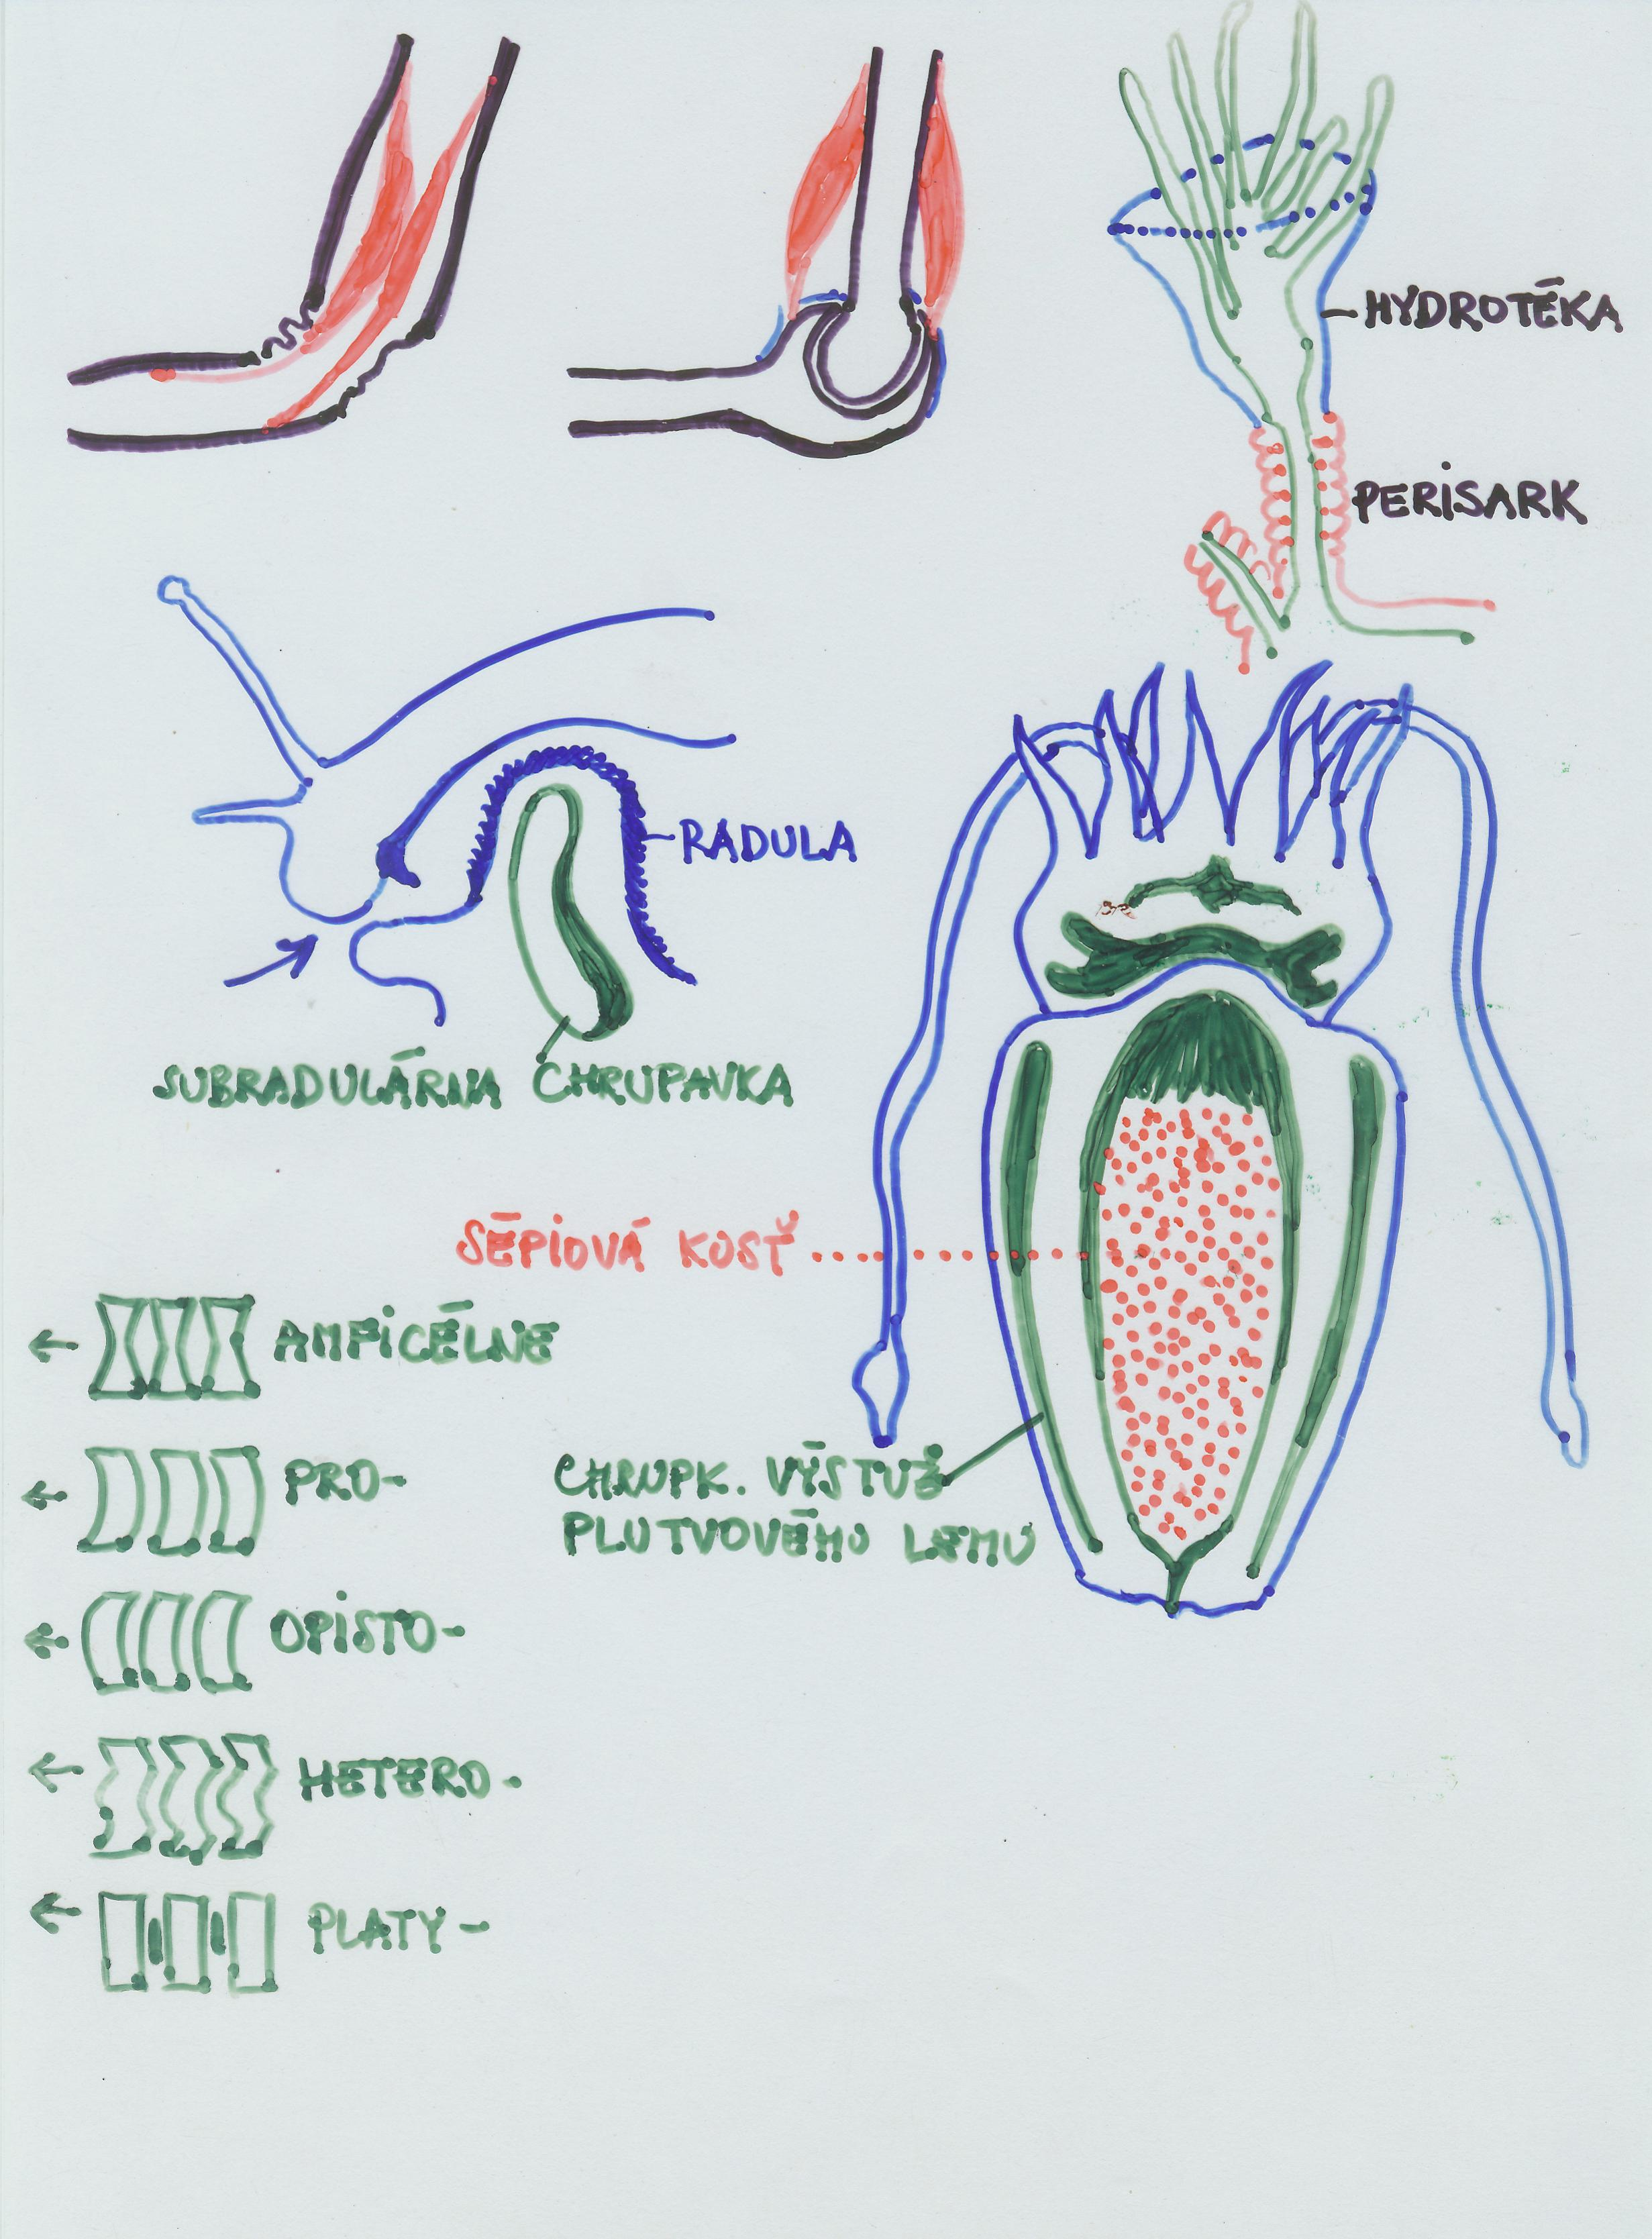 HYDROTÉKA
PERISARK
RADULA
SUBRADULÁRNA CHRUPAVKA
SÉPIOVÁ KOSŤ
AMFICÉLNE
PRO-
OPISTO-
HETERO-
PLATY-
CHRUPK. VÝSTUŽ
PLUTVOVÉHO LEMU